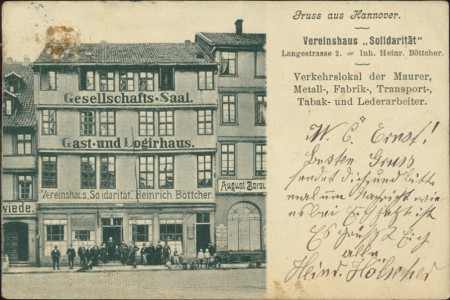 Gruss aus Hannover.
Vereinshaus „Solidarität"
Langestrasse 2. Inh. Heinr. Böttcher.
Verkehrslokal der Maurer,
Metall-, Fabrik-, Transport-,
Tabak- und Lederarbeiter.
Gesellschafts-Saal.
Gast-und Logirhaus.
Vereinshaus „Solidarität" Heinrich Böttcher
August
wiede.
Ernst!
Besten Gruss
sendet dir und bitte
Nachricht wie
es bei Euch jetzt ist
Es grüßt Euch
alle
Heinr.